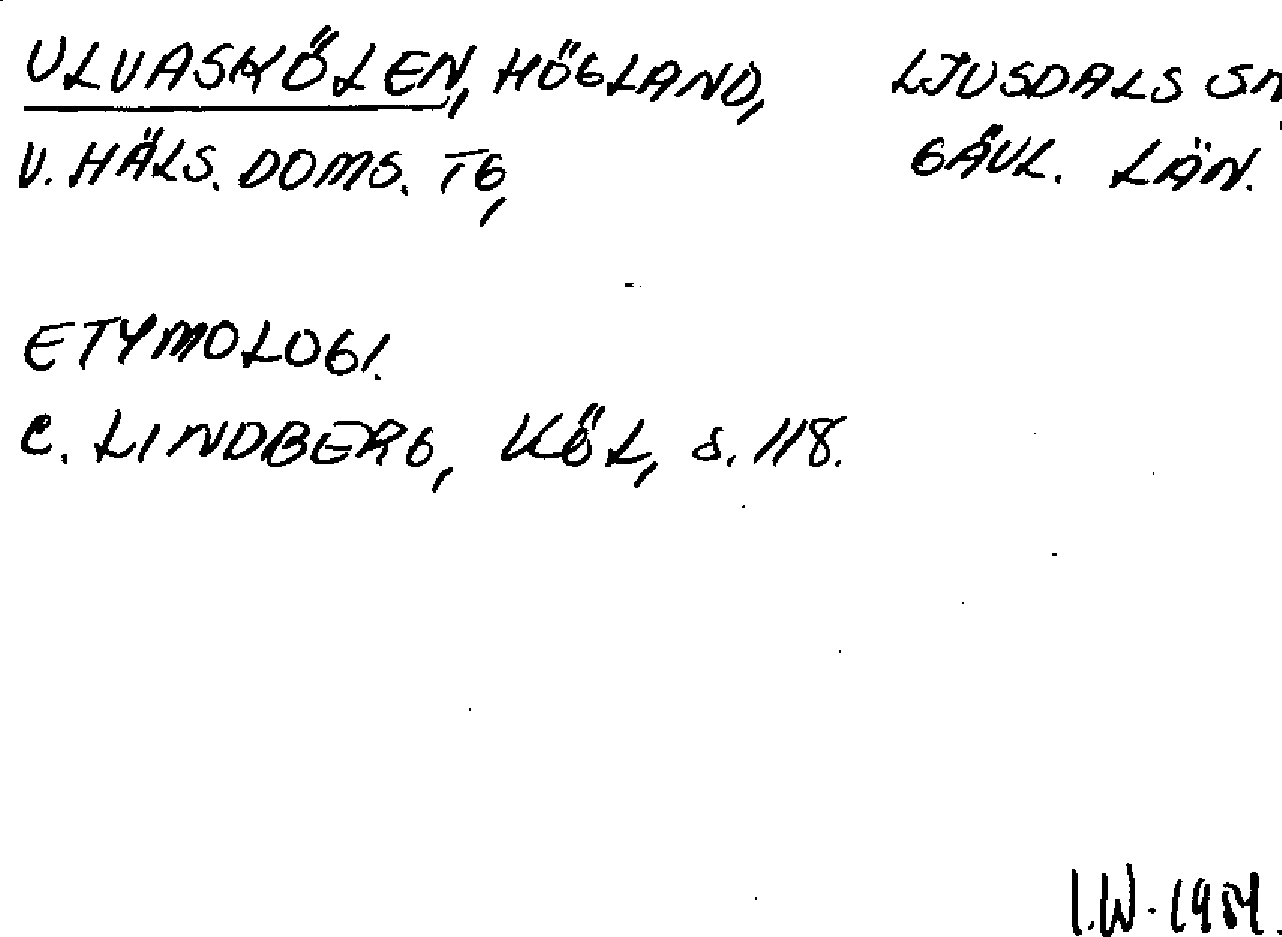 ULVASKÖLEN, HÖGLAND, LJUSDALS SN
V. HÄLS. DOMS. TG, GÄVL. LÄN.
ETYMOLOGI.
C. LINDBERG, KÖL, s. 118.
I.W.